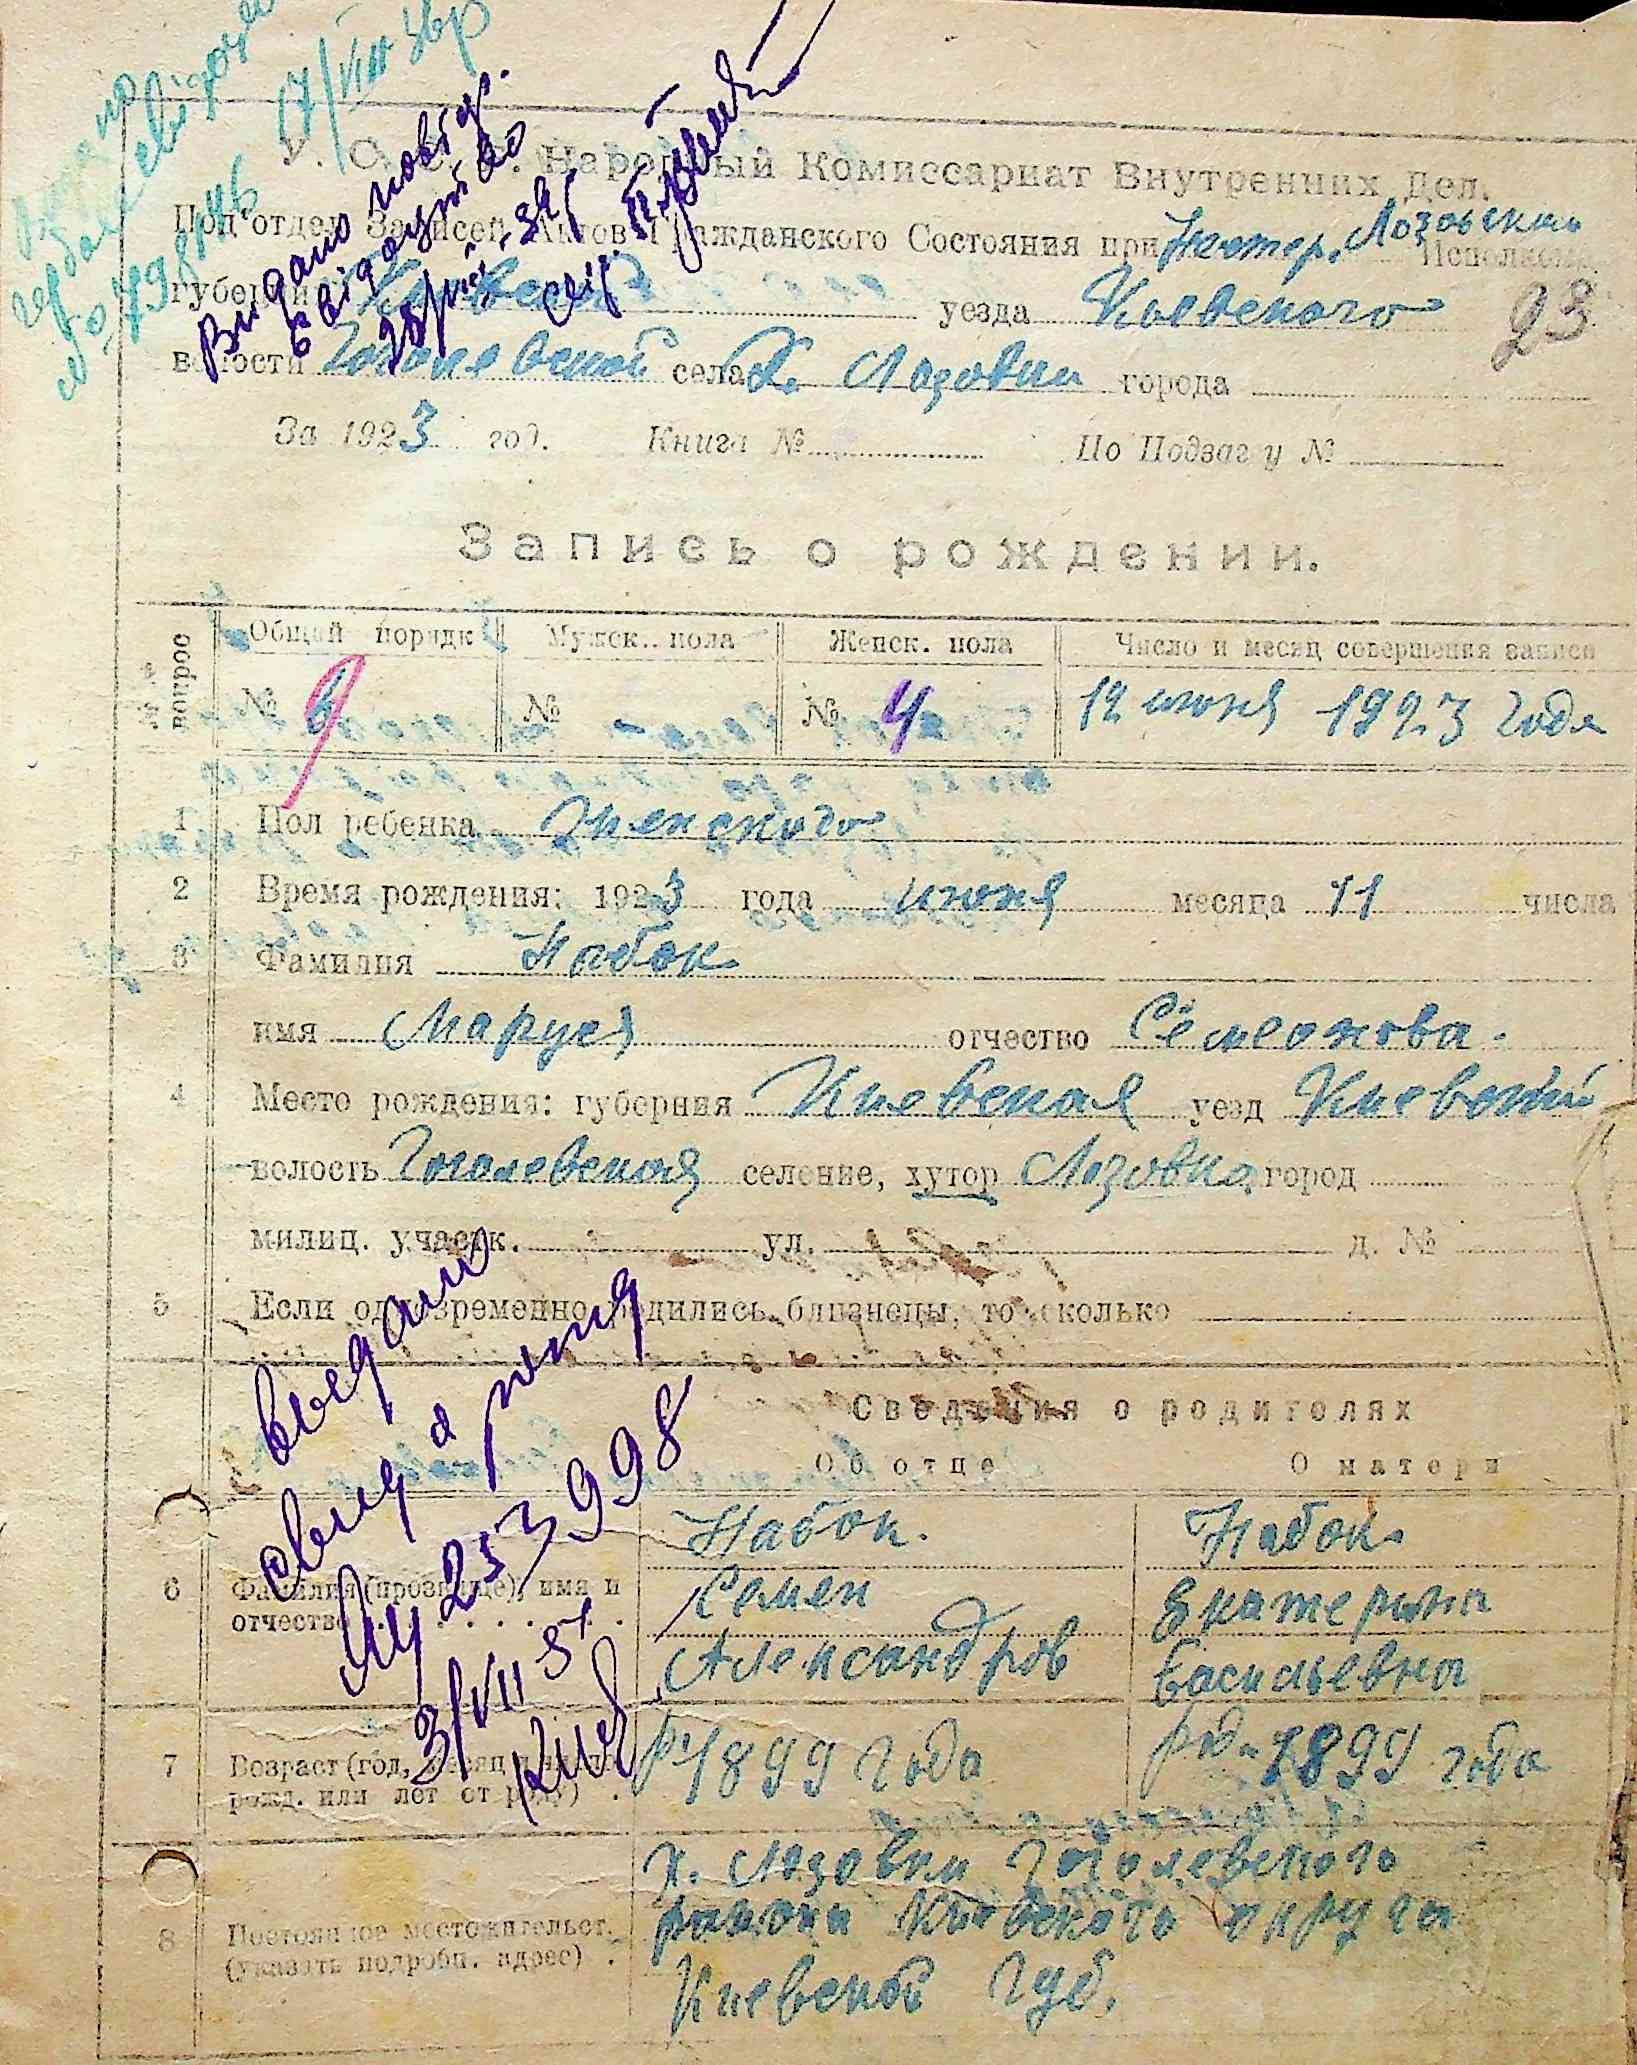 17/VIII 36р
№ 498446
Видано повтор.
свідоцтво
У. С. С. Р. Народный Комиссариат Внутренних Дел.
Под'отдел Записей Актов Гражданского Состояния при Хутор. Лозовском Исполкоме
губернии Киевской уезда Киевского 23
волости Гоголевской села Х. Лозовки города
За 1923 год. Книга № По Подзагу №
Запись о рождении.
№№ вопрос
Общей порядк Мужск. пола Женск. пола Число и месяц совершения записи
№ 9 № № 4 12 июня 1923 года
1 Пол ребенка Женского
2 Время рождения: 1923 года июня месяца 11 числа
3 Фамилия Набок
имя Маруся отчество Семеонова.
4 Место рождения: губерния Киевская уезд Киевский
волость Гоголевская селение, хутор Лозовка город
милиц. участк. ул. д. №
5 Если одновременно родились близнецы, то сколько
Сведения о родителях
Об отце О матери
выдано
повтор
253998
3/VII 51
Киев
6 Фамилия (прозвище), имя и
отчество
Набок. Набок
Семен Екатерина
Александров Васильевна
7 Возраст (год, месяц и число
рожд. или лет от роду)
р. 1899 года род. 1899 года
8 Постоянное местожительст.
(указать подробн. адрес)
х. Лозовки Гоголевского
района Киевского округа
Киевской Губ.